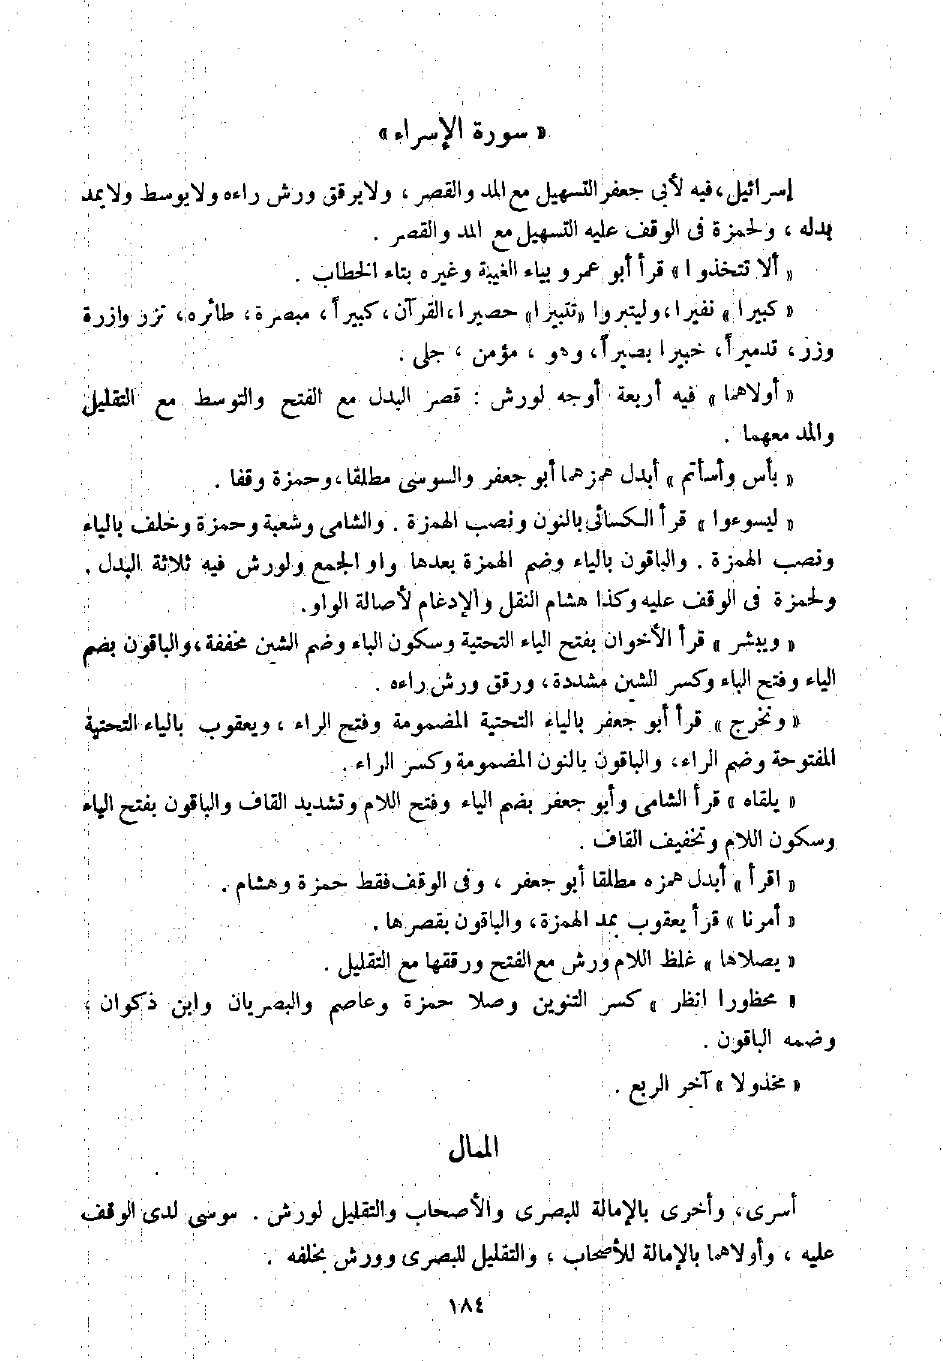 « سورة الإسراء »
إسرائيل، فيه لأبى جعفر التسهيل مع المد والقصر ، ولا يرقق ورش راءه ولا يوسط ولا يمد
بدله ، ولحمزة فى الوقف عليه التسهيل مع المد والقصر .
« ألا تتخذوا » قرأ أبو عمرو بياء الغيبة وغيره بتاء الخطاب .
« كبيرا » نفيرا، وليتبروا «تتبيرا» حصيرا، القرآن، كبيراً، مبصرة، طائره، تزر وازرة
وزر، تدميراً، خبيرا بصيراً، وهو ، مؤمن ، جلى .
« أولاهما » فيه أربعة أوجه لورش : قصر البدل مع الفتح والتوسط مع التقليل
والمد معهما .
« بأس وأسأتم » أبدل همزهما أبو جعفر والسوسى مطلقا، وحمزة وقفا .
« ليسوءوا » قرأ الكسائى بالنون ونصب الهمزة . والشامى وشعبة وحمزة وخلف بالياء
ونصب الهمزة . والباقون بالياء وضم الهمزة بعدها واو الجمع ولورش فيه ثلاثة البدل .
ولحمزة فى الوقف عليه وكذا هشام النقل والإدغام لأصالة الواو.
« ويبشر » قرأ الأخوان بفتح الياء التحتية وسكون الباء وضم الشين مخففة، والباقون بضم
الياء وفتح الباء وكسر الشين مشددة، ورقق ورش راءه .
« ونخرج » قرأ أبو جعفر بالياء التحتية المضمومة وفتح الراء ، ويعقوب بالياء التحتية
المفتوحة وضم الراء، والباقون بالنون المضمومة وكسر الراء .
« يلقاه » قرأ الشامى وأبو جعفر بضم الياء وفتح اللام وتشديد القاف والباقون بفتح الياء
وسكون اللام وتخفيف القاف .
« اقرأ » أبدل همزه مطلقا أبو جعفر ، وفى الوقف فقط حمزة وهشام .
« أمرنا » قرأ يعقوب بمد الهمزة، والباقون بقصرها .
« يصلاها » غلظ اللام ورش مع الفتح ورققها مع التقليل .
« محظورا انظر » كسر التنوين وصلا حمزة وعاصم والبصريان وابن ذكوان ،
وضمه الباقون .
« مخذولا » آخر الربع .
الممال
أسرى، وأخرى بالإمالة للبصرى والأصحاب والتقليل لورش . موسى لدى الوقف
عليه ، وأولاهما بالإمالة للأصحاب ، والتقليل للبصرى وورش بخلفه .
١٨٤